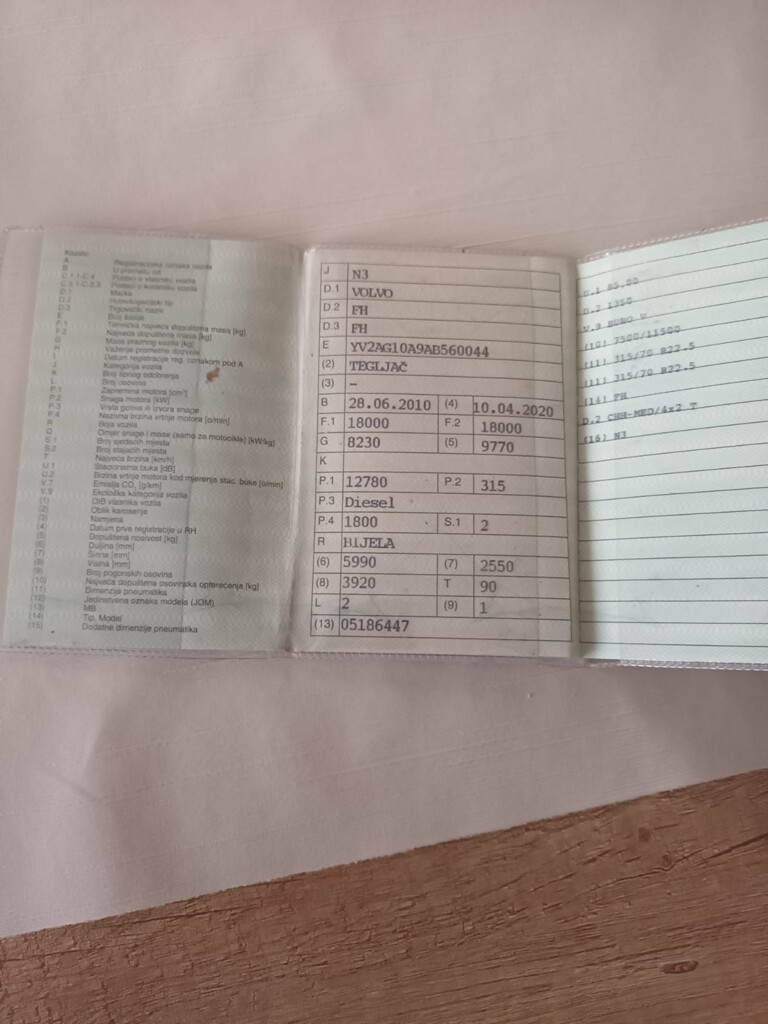 A Registracijska oznaka vozila
B U prometu od
C.1.1-C.4 Podaci o vlasniku vozila
Podaci o korisniku vozila
D.1 Marka
D.2 Homologacijski tip
D.3 Trgovački naziv
E Broj šasije
F.1 Tehnička najveća dopuštena masa [kg]
F.2 Najveća dopuštena masa [kg]
G Masa praznog vozila [kg]
H Važenje prometne dozvole
Datum registracije reg. oznakom pod A
J Kategorija vozila
K Broj tipnog odobrenja
L Broj osovina
P.1 Zapremina motora [cm³]
P.2 Snaga motora [kW]
P.3 Vrsta goriva ili izvora snage
P.4 Nazivna brzina vrtnje motora [o/min]
R Boja vozila
Q Omjer snage i mase (samo za motocikle) [kW/kg]
S.1 Broj sjedećih mjesta
S.2 Broj stajaćih mjesta
T Najveća brzina [km/h]
U.1 Stacionarna buka [dB]
U.2 Brzina vrtnje motora kod mjerenja stac. buke [o/min]
V.7 Emisija CO₂ [g/km]
V.9 Ekološka kategorija vozila
(1) OIB vlasnika vozila
(2) Oblik karoserije
(3) Namjena
(4) Datum prve registracije u RH
(5) Dopuštena nosivost [kg]
(6) Duljina [mm]
(7) Širina [mm]
(8) Visina [mm]
(9) Broj pogonskih osovina
(10) Najveća dopuštena osovinska opterećenja [kg]
(11) Dimenzije pneumatika
(12) Jedinstvena oznaka modela (JOM)
(13) MB
(14) Tip, Model
(15) Dodatne dimenzije pneumatika
J N3
D.1 VOLVO
D.2 FH
D.3 FH
E YV2AG10A9AB560044
(2) TEGLJAČ
(3) –
B 28.06.2010 (4) 10.04.2020
F.1 18000 F.2 18000
G 8230 (5) 9770
K
P.1 12780 P.2 315
P.3 Diesel
P.4 1800 S.1 2
R BIJELA
(6) 5990 (7) 2550
(8) 3920 T 90
L 2 (9) 1
(13) 05186447
U.1 85.00
U.2 1350
V.9 EURO V
(10) 7500/11500
(11) 315/70 R22.5
(11) 315/70 R22.5
(14) FH
D.2 CHH-MED/4x2 T
(16) N3